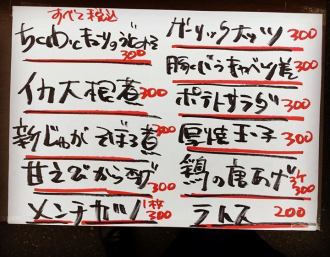 すべて税込
ちくわときゅうり
300
イカ大根煮 300
新じゃがそぼろ煮 300
甘えびから揚げ 300
メンチカツ 1枚 300
ガーリックナッツ 300
豚バラキャベツ 300
ポテトサラダ 300
厚焼玉子 300
鶏の唐あげ 3ケ 300
ラトス 200